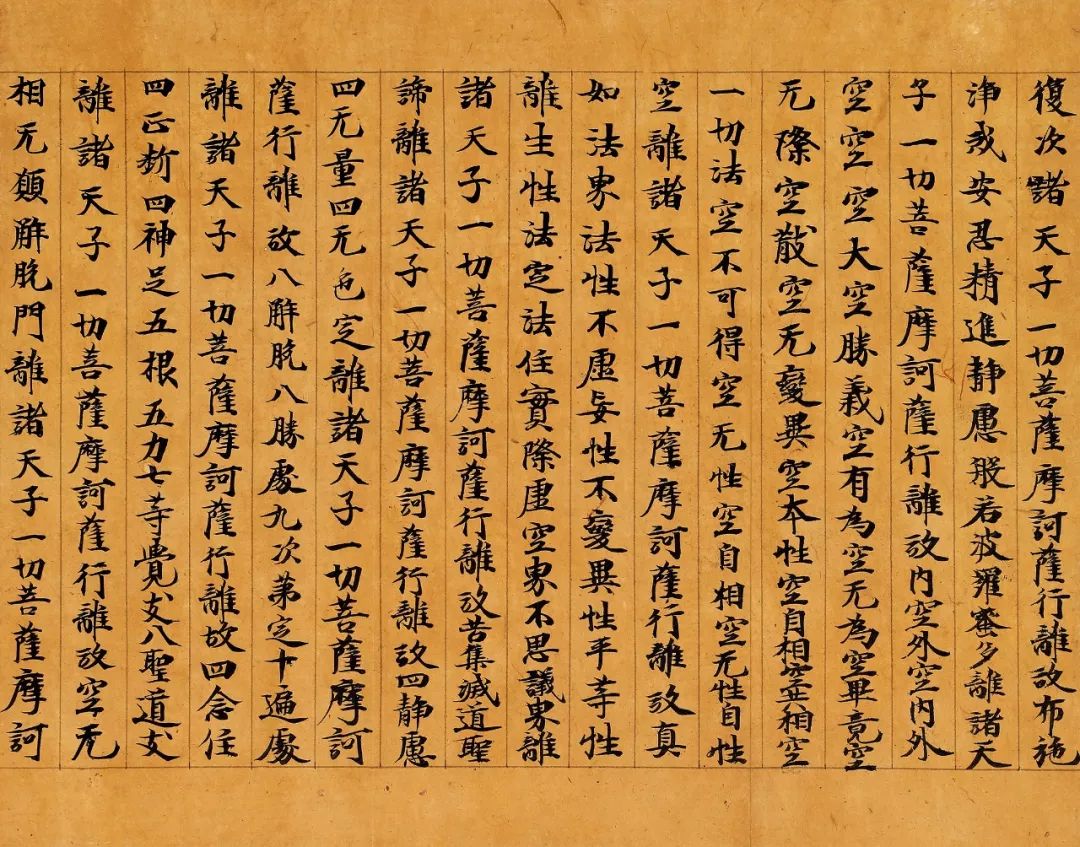 復次諸天子一切菩薩摩訶薩行離故布施
淨戒安忍精進静慮般若波羅蜜多離諸天
子一切菩薩摩訶薩行離故内空外空内外
空空空大空勝義空有為空无為空畢竟空
无際空散空无變異空本性空自相空共相空
一切法空不可得空无性空自相空无性自性
空離諸天子一切菩薩摩訶薩行離故真
如法界法性不虚妄性不變異性平等性
離生性法定法住實際虚空界不思議界離
諸天子一切菩薩摩訶薩行離故苦集滅道聖
諦離諸天子一切菩薩摩訶薩行離故四静慮
四无量四无色定離諸天子一切菩薩摩訶
薩行離故八解脱八勝處九次第定十遍處
離諸天子一切菩薩摩訶薩行離故四念住
四正斷四神足五根五力七等覺支八聖道支
離諸天子一切菩薩摩訶薩行離故空无
相无願解脱門離諸天子一切菩薩摩訶